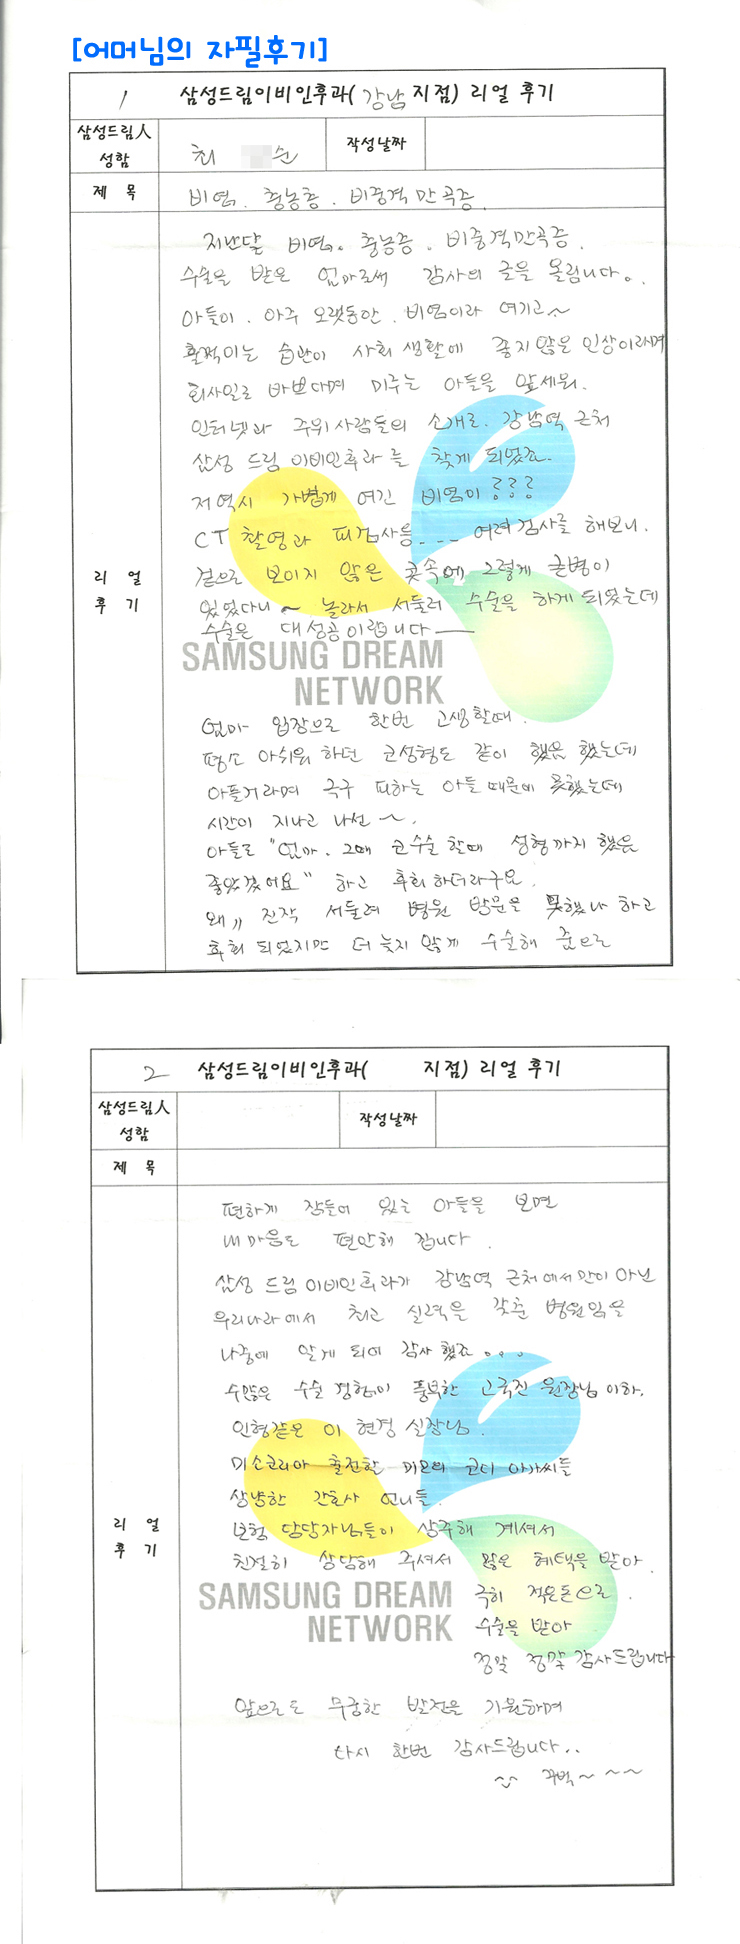 [어머님의 자필후기]
1 삼성드림이비인후과( 강남 지점) 리얼 후기
삼성드림人 성함
최 순
작성날짜
제 목
비염. 축농증. 비중격만곡증.
리 얼 후 기
지난달 비염. 축농증. 비중격만곡증.
수술을 받은 엄마로써 감사의 글을 올립니다.
아들이. 아주 오랫동안. 비염이라 여기고~
훌쩍이는 습관이 사회 생활에 좋지 않은 인상이라며
회사일로 바쁘다며 미루는 아들을 앞세워.
인터넷과 주위사람들의 소개로. 강남역 근처
삼성 드림 이비인후과를 찾게 되었죠.
저역시 가볍게 여긴 비염이 ㄹㄹㄹ
CT 촬영과 피검사등... 여러검사를 해보니.
겉으로 보이지 않은 콧속에 그렇게 큰병이
있었다니~ 놀라서 서둘러 수술을 하게 되었는데
수술은 대성공이랍니다—
SAMSUNG DREAM
NETWORK
엄마 입장으로 한번 고생할때.
평소 아쉬워 하던 코성형도 같이 했음 했는데
아플거라며 극구 피하는 아들 때문에 못했는데
시간이 지나고 나선~.
아들도 "엄마. 그때 코수술 할때 성형까지 했음
좋았겠어요" 하고 후회하더라구요.
왜,, 진작 서둘러 병원 방문을 못했나 하고
후회 되었지만 더 늦지 않게 수술해 줌으로
2 삼성드림이비인후과( 지점) 리얼 후기
삼성드림人 성함
작성날짜
제 목
리 얼 후 기
편하게 잠들어 있는 아들을 보면
내 마음도 편안해 집니다.
삼성 드림 이비인후과가 강남역 근처에서만이 아닌
우리나라에서 최고 실력을 갖춘 병원임을
나중에 알게 되어 감사했죠...
수많은 수술 경험이 풍부한 고국진 원장님 이하.
인형같은 이 현정 실장님.
미스코리아 출전한 미모의 코디 아가씨들
상냥한 간호사 언니들.
보험 담당자님들이 상주해 계셔서
친절히 상담해 주셔서 많은 혜택을 받아.
극히 적은돈으로.
수술을 받아
정말 정말 감사드립니다
SAMSUNG DREAM
NETWORK
앞으로도 무궁한 발전을 기원하며
다시 한번 감사드립니다..
^^ 꾸벅~ ~~